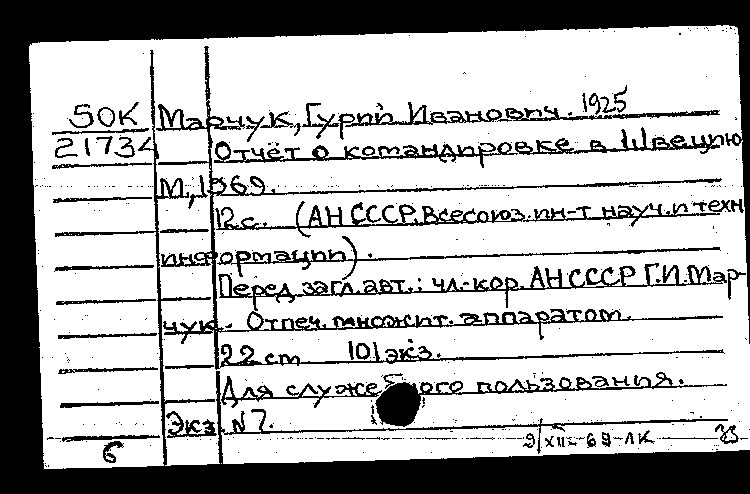 50К Марчук, Гурий Иванович. 1925
21734 Отчёт о командировке в Швецию
М, 1969.
12 с. (АН СССР. Всесоюз. ин-т науч. и техн
информации).
Перед загл. авт.: чл.-кор. АН СССР Г.И. Мар-
чук. Отпеч. множит. аппаратом.
22 cm 101 экз.
Для служебного пользования.
Экз. N 7.
6 9/XII-69 ЛК